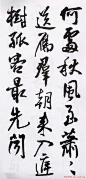 何處秋風至蕭〻
送雁群朝來入庭
樹孤客最先聞